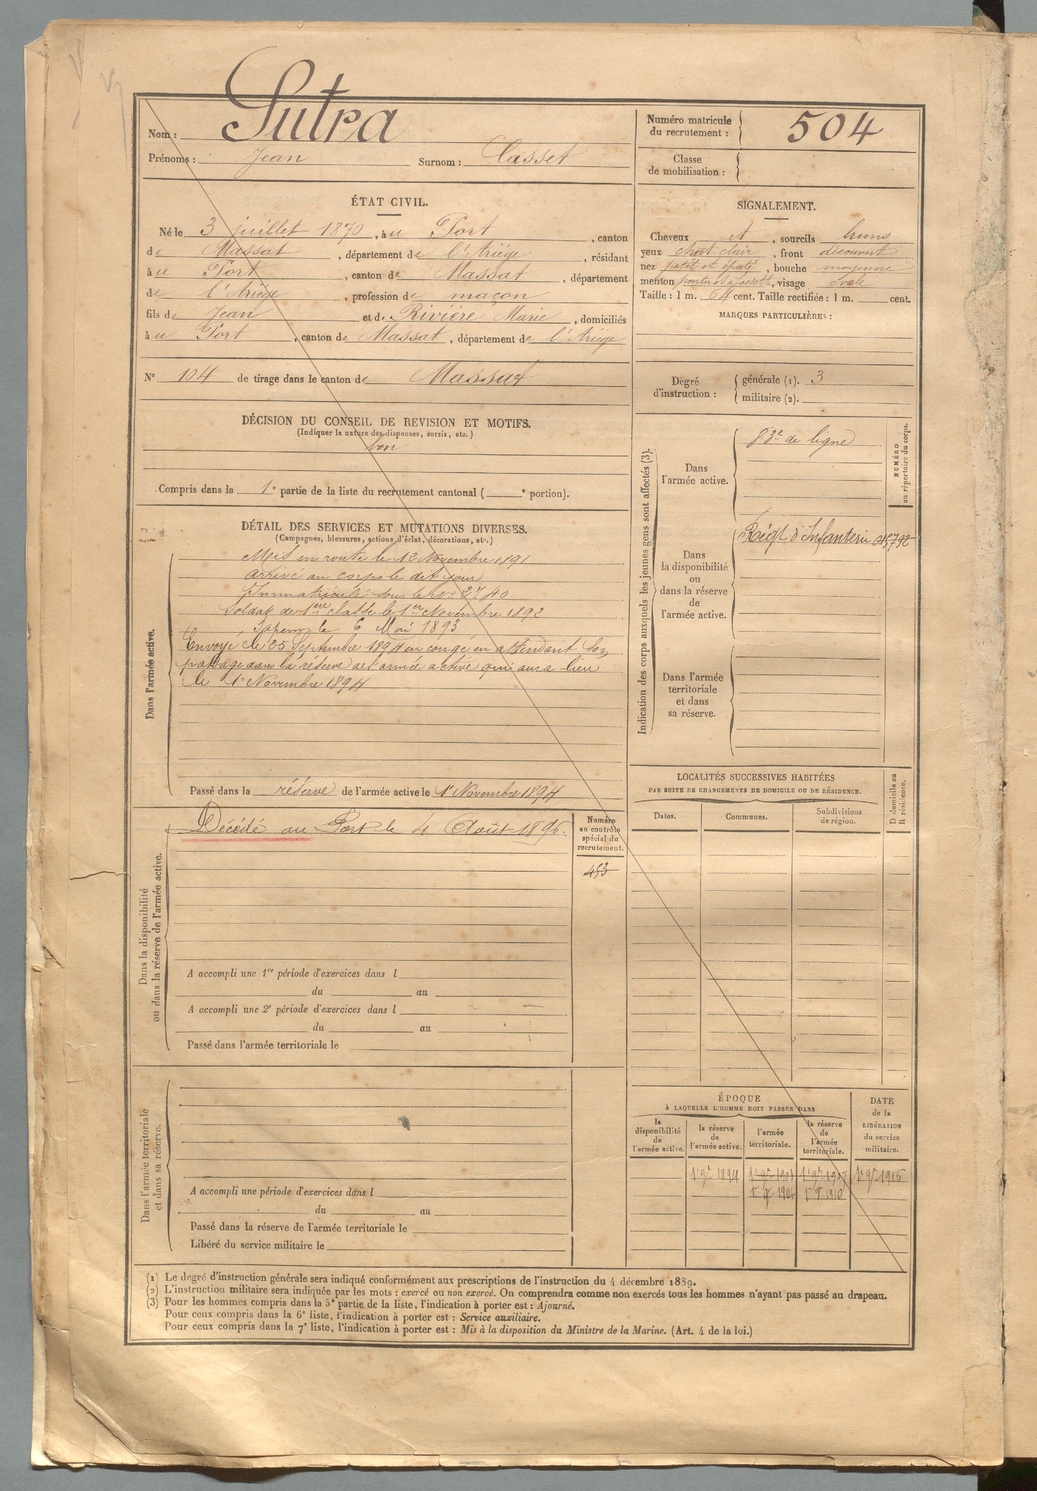 Nom : Sutra
Prénoms : Jean Surnom : Casset
Numéro matricule du recrutement : 504
Classe de mobilisation :
ÉTAT CIVIL.
Né le 3 juillet 1870, à u Port, canton
de Massat, département de l'Ariège, résidant
à u Port, canton de Massat, département
de l'Ariège, profession de maçon
fils de Jean et de Rivière Marie, domiciliés
à u Port, canton de Massat, département de l'Ariège
N° 104 de tirage dans le canton de Massat
SIGNALEMENT.
Cheveux et, sourcils bruns
yeux chat. clair, front découvert
nez petit et épaté, bouche moyenne
menton pointu et à fossette, visage ovale
Taille : 1 m. 64 cent. Taille rectifiée : 1 m. cent.
MARQUES PARTICULIÈRES :
Degré d'instruction :
générale (1). 3
militaire (2).
DÉCISION DU CONSEIL DE REVISION ET MOTIFS.
(Indiquer la nature des dispenses, sursis, etc.)
bon
Compris dans la 1e partie de la liste du recrutement cantonal ( e portion).
DÉTAIL DES SERVICES ET MUTATIONS DIVERSES.
(Campagnes, blessures, actions d'éclat, décorations, etc.)
Dans l'armée active.
Mis en route le 12 Novembre 1891
arrivé au corps le dit jour
Immatriculé sous le N° 2740
Soldat de 1ere classe le 1er Novembre 1892
Sapeur le 6 Mai 1893
Envoyé le 25 Septembre 1894 en congé en attendant son
passage dans la réserve de l'armée active qui aura lieu
le 1e Novembre 1894
Passé dans la réserve de l'armée active le 1e Novembre 1894
Indication des corps auxquels les jeunes gens sont affectés (3).
Dans l'armée active.
83e de ligne
NUMÉRO au répertoire du corps.
Dans la disponibilité ou dans la réserve de l'armée active.
Régt d'Infanterie
Dans l'armée territoriale et dans sa réserve.
LOCALITÉS SUCCESSIVES HABITÉES
PAR SUITE DE CHANGEMENTS DE DOMICILE OU DE RÉSIDENCE.
Dates.
Communes.
Subdivisions de région.
D domicile ou R résidence.
Dans la disponibilité ou dans la réserve de l'armée active.
Décédé au Port le 4 Août 1896.
Numéro au contrôle spécial du recrutement.
453
A accompli une 1re période d'exercices dans l
du au
A accompli une 2e période d'exercices dans l
du au
Passé dans l'armée territoriale le
Dans l'armée territoriale et dans sa réserve.
A accompli une période d'exercices dans l
du au
Passé dans la réserve de l'armée territoriale le
Libéré du service militaire le
ÉPOQUE
À LAQUELLE L'HOMME DOIT PASSER DANS
la disponibilité de l'armée active.
la réserve de l'armée active.
l'armée territoriale.
la réserve de l'armée territoriale.
DATE de la LIBÉRATION du service militaire.
(1) Le degré d'instruction générale sera indiqué conformément aux prescriptions de l'instruction du 4 décembre 1889.
(2) L'instruction militaire sera indiquée par les mots : exercé ou non exercé. On comprendra comme non exercés tous les hommes n'ayant pas passé au drapeau.
(3) Pour les hommes compris dans la 5e partie de la liste, l'indication à porter est : Ajourné.
Pour ceux compris dans la 6e liste, l'indication à porter est : Service auxiliaire.
Pour ceux compris dans la 7e liste, l'indication à porter est : Mis à la disposition du Ministre de la Marine. (Art. 4 de la loi.)